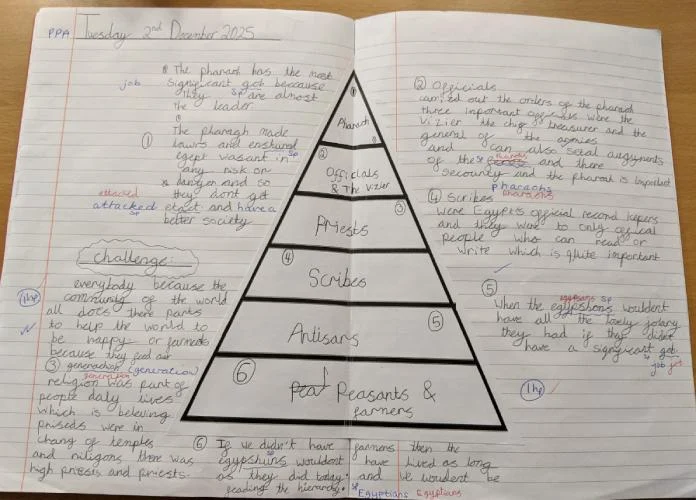 PPA Tuesday 2nd December 2025
The pharaoh has the most
job significant got beccause
they sp are almost
the leader
① The pharagh made
lawrs and enshured
egept vasant in sp
any risk or
danger and so
attacked they dont get
attacked attact and have a
sp better society
Challenge:
everybody because the
1hp community of the world
all does there parts
to help the world to
be happy or farmers
because they feed air
③ generachion (generation)
generation
religion was part of
people daly lives
which is beleving
priseds were in
chang of temples
and riligons there was
high priests and priests.
① Pharaoh
② Officials
& The Vizier
③ Priests
④ Scribes
⑤ Artisans
⑥ Peasants &
farmers
② Officials
carried out the orders of the pharaoh
three inportant officals were the
Vizier the chief treasurer and the
general of the armies
and can also setal arguments
of the and there
pharaohs
security and the pharaoh is important
pharaohs
pharaohs
④ Scribes
were Egypts official record kepers
and they were to only offical
people who can read or
write which is quite important
⑤
egyptians sp
When the egypshons wouldent
have all the lovely
they had if they didnt
have a significant got
job
1hp
⑥ If we didn't have farmers then the
sp
egypshuns wouldent have lived as long
as they did today. and we wouldent be
reading the hierarchy.
sp Egyptians Egyptians